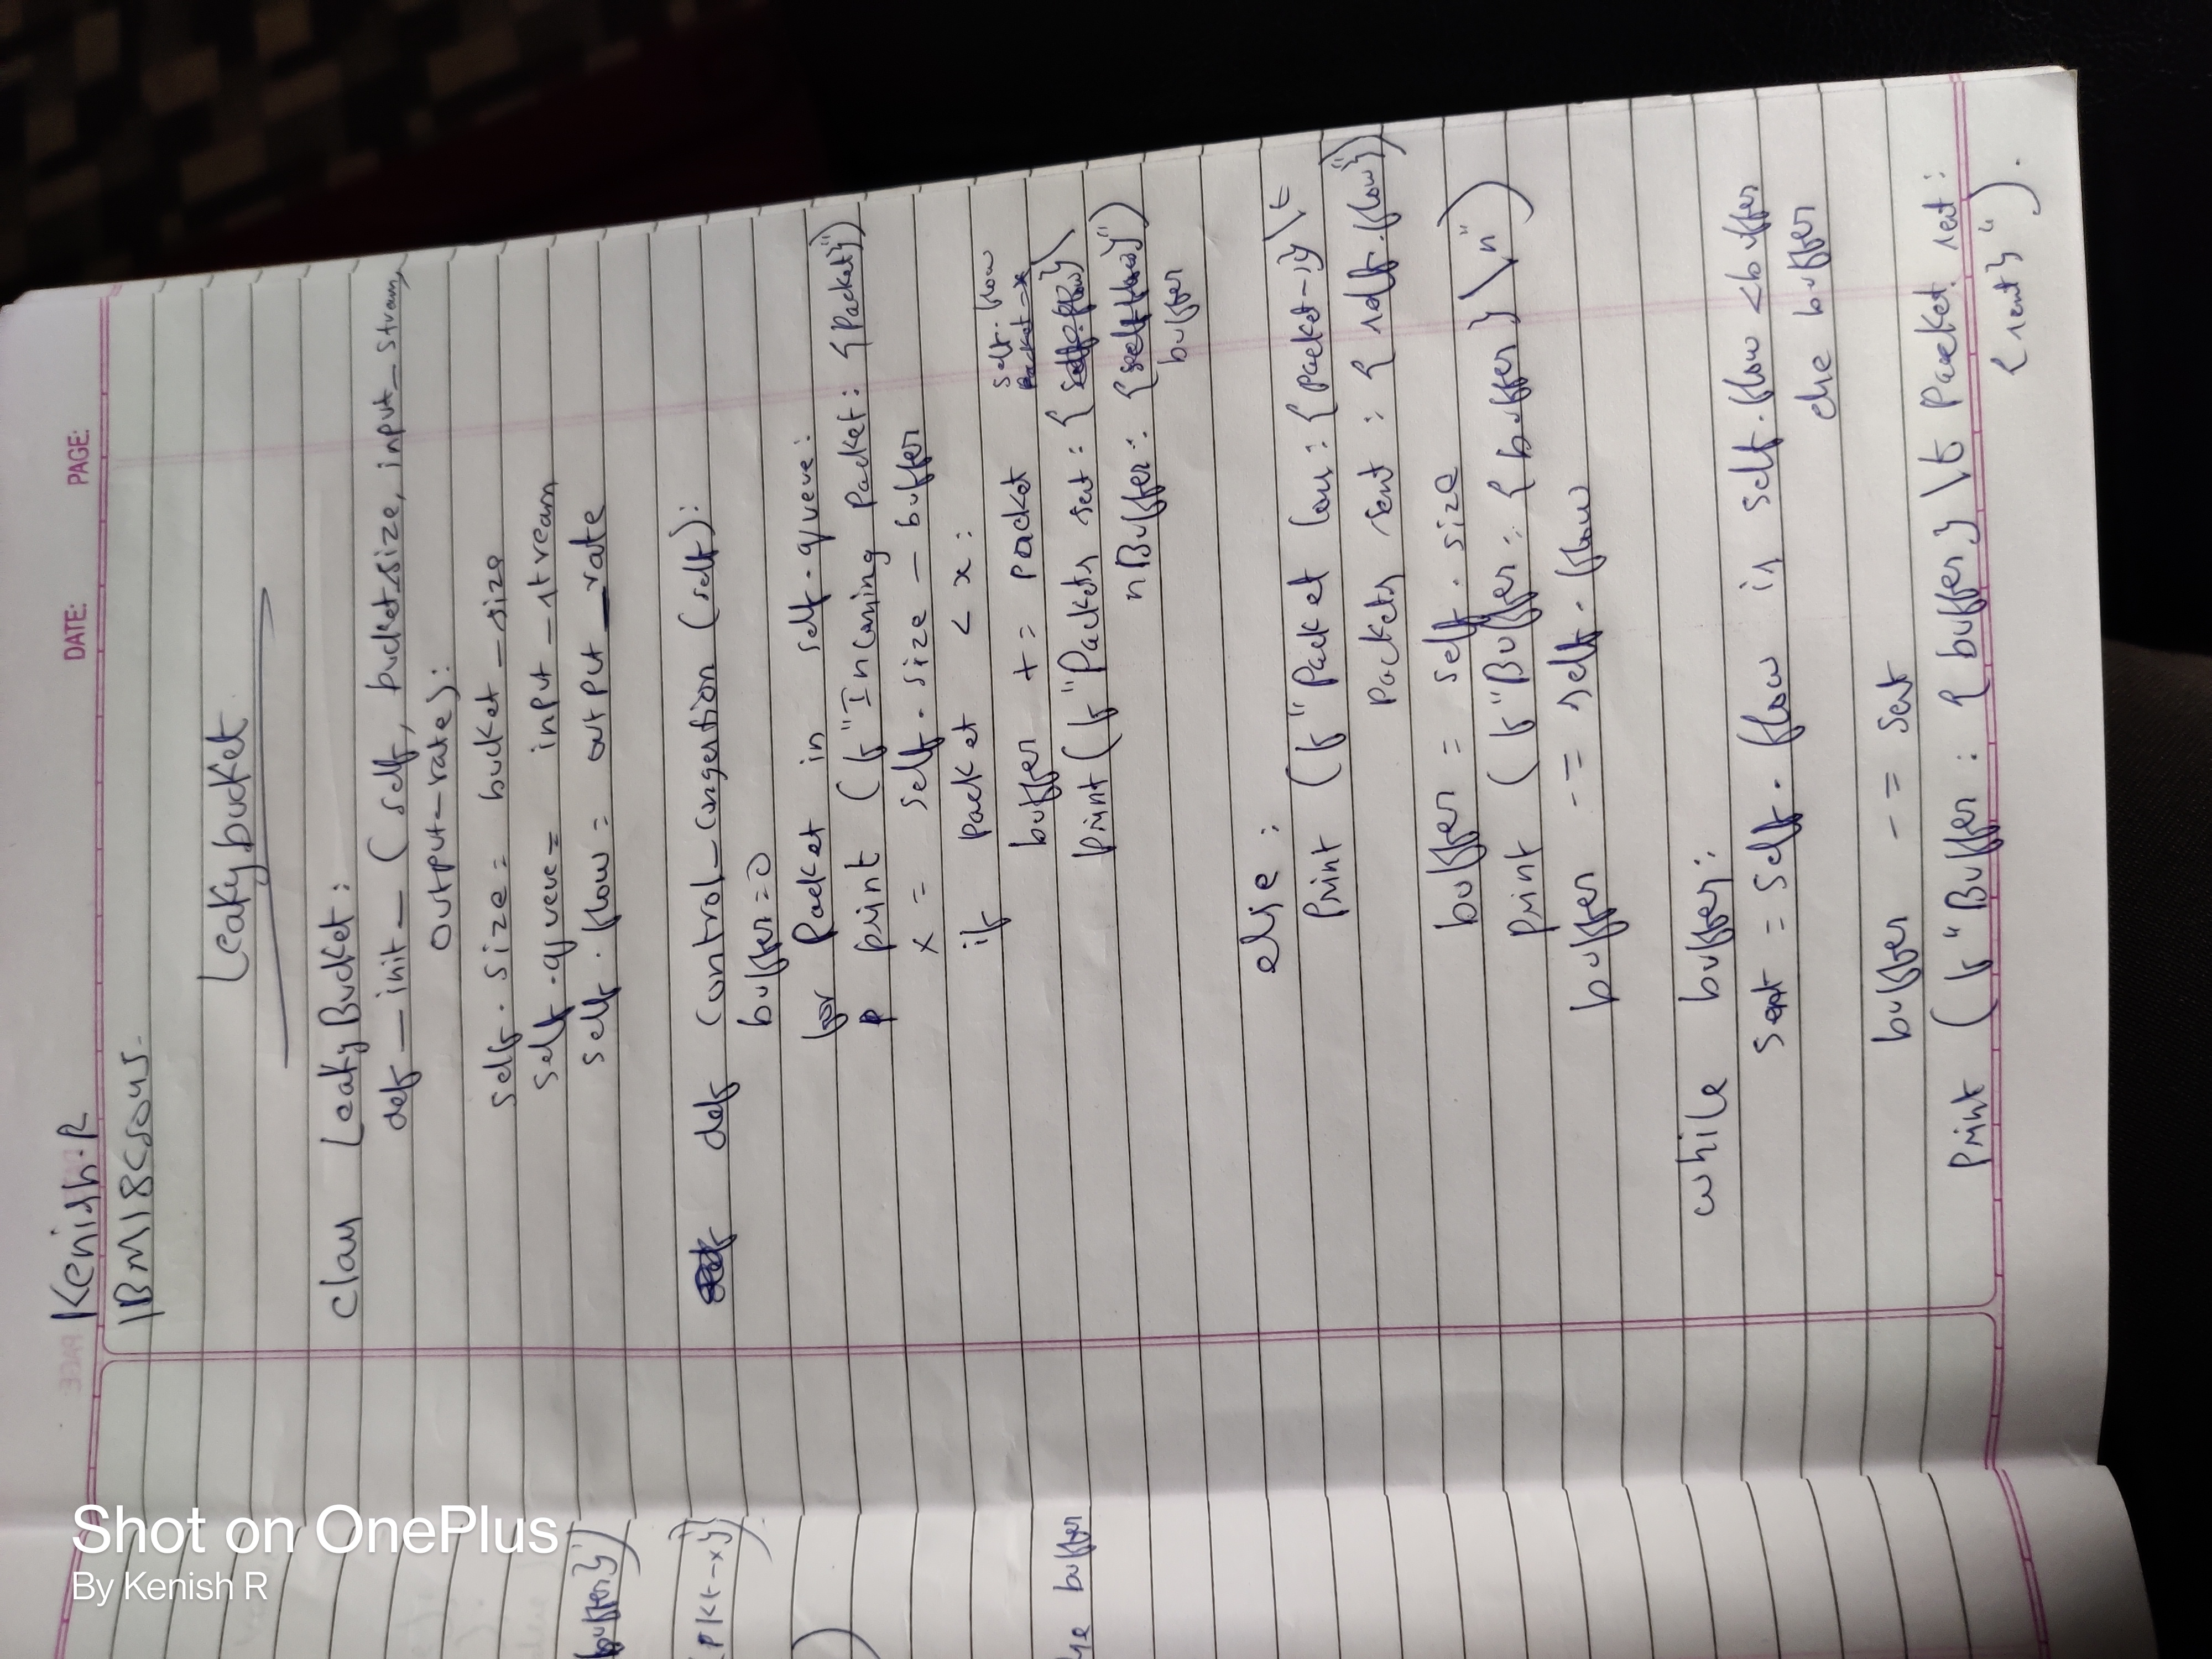 PAGE:
DATE:
Kenish.R
1BM18CS045.
Leaky bucket
class LeakyBucket:
def __init__(self, bucket_size, input_stream,
output_rate):
self.size = bucket_size
self.queue = input_stream
self.flow = output_rate
def control_congestion (self):
buffer=0
for Packet in self.queue:
print (f"Incoming Packet: {Packet}")
x = self.size - buffer
if packet < x:
self.flow
buffer += packet
print(f"Packets sent: { }\
nBuffer: { }")
buffer
else:
print (f"Packet loss: {packet-x}\t
Packets sent: {self.flow}")
buffer = self.size
print (f"Buffer: {buffer}\n")
buffer -= self.flow
while buffer:
sent = self.flow is self.flow <buffer
else buffer
buffer -= sent
print (f"Buffer: {buffer}\t Packet sent:
{sent}").
buffer}")
{pkt-x}
)
else buffer
Shot on OnePlus
By Kenish R